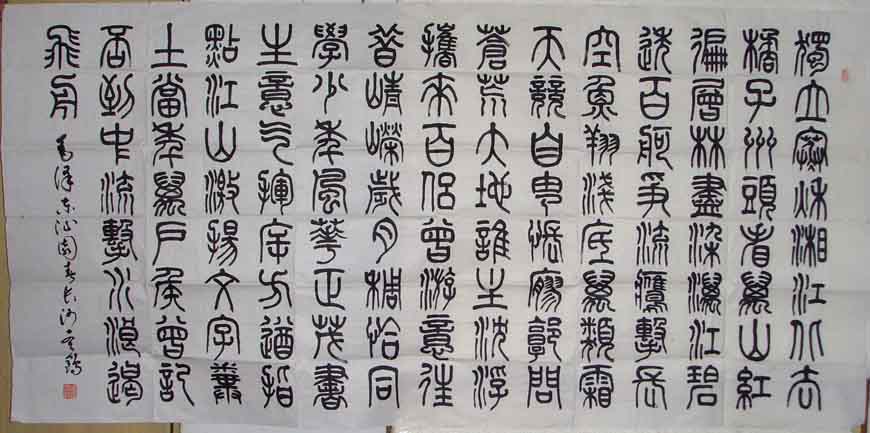 獨立寒秋湘江北去
橘子州頭看萬山紅
遍層林盡染漫江碧
透百舸爭流鷹擊長
空魚翔淺底萬類霜
天競自由悵寥廓問
蒼茫大地誰主沉浮
攜來百侶曾游憶往
昔崢嶸歲月稠恰同
學少年風華正茂書
生意氣揮斥方遒指
點江山激揚文字糞
土當年萬戶侯曾記
否到中流擊水浪遏
飛舟
毛澤東沁園春長沙